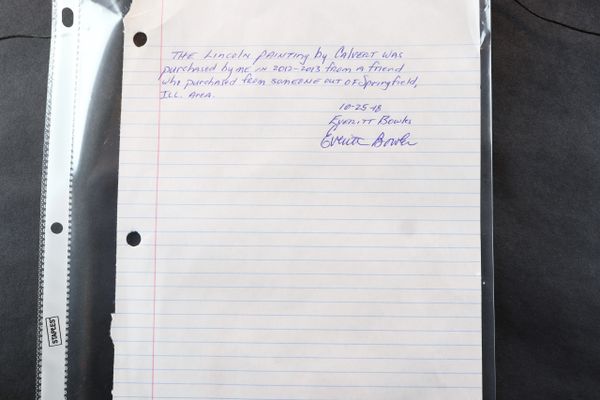 THE LINCOLN PAINTING by CALVERT WAS
purchased by ME IN 2012-2013 from A friend
who purchased from SOMEONE OUT OF Springfield,
ILL. AREA.
10-25-18
EVERITT Bowles
Everitt Bowles
STAPLES